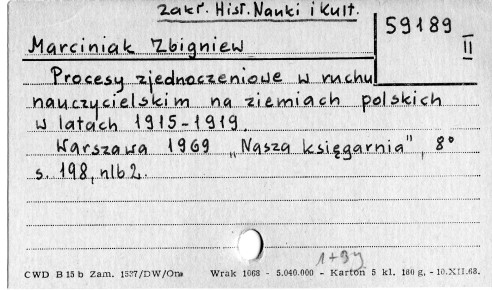 Zakł. Hist. Nauki i Kult.
59189
II
Marciniak Zbigniew
Procesy zjednoczeniowe w ruchu
nauczycielskim na ziemiach polskich
w latach 1915-1919.
Warszawa 1969 „Nasza księgarnia", 8°
s. 198, nlb 2.
1+3y
CWD B 15 b Zam. 1537/DW/Ons Wrak 1068 - 5.040.000 - Karton 5 kl. 180 g. - 10.XII.68.